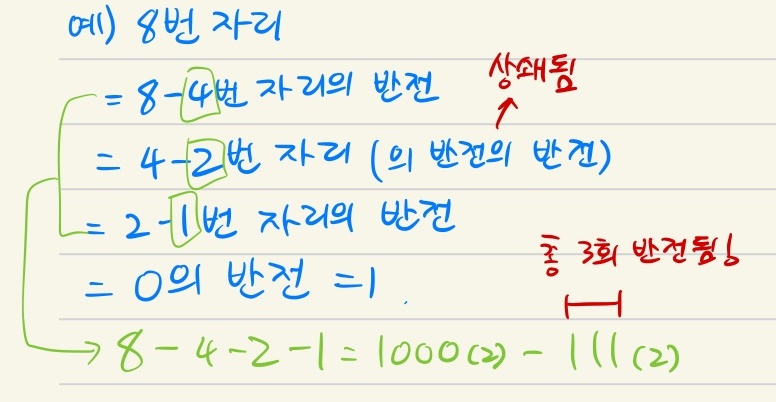 예) 8번 자리
= 8-4번 자리의 반전
상쇄됨
= 4-2번 자리 (의 반전의 반전)
= 2-1번 자리의 반전
총 3회 반전됨!
= 0의 반전 = 1.
8-4-2-1 = 1000(2) - 111(2)